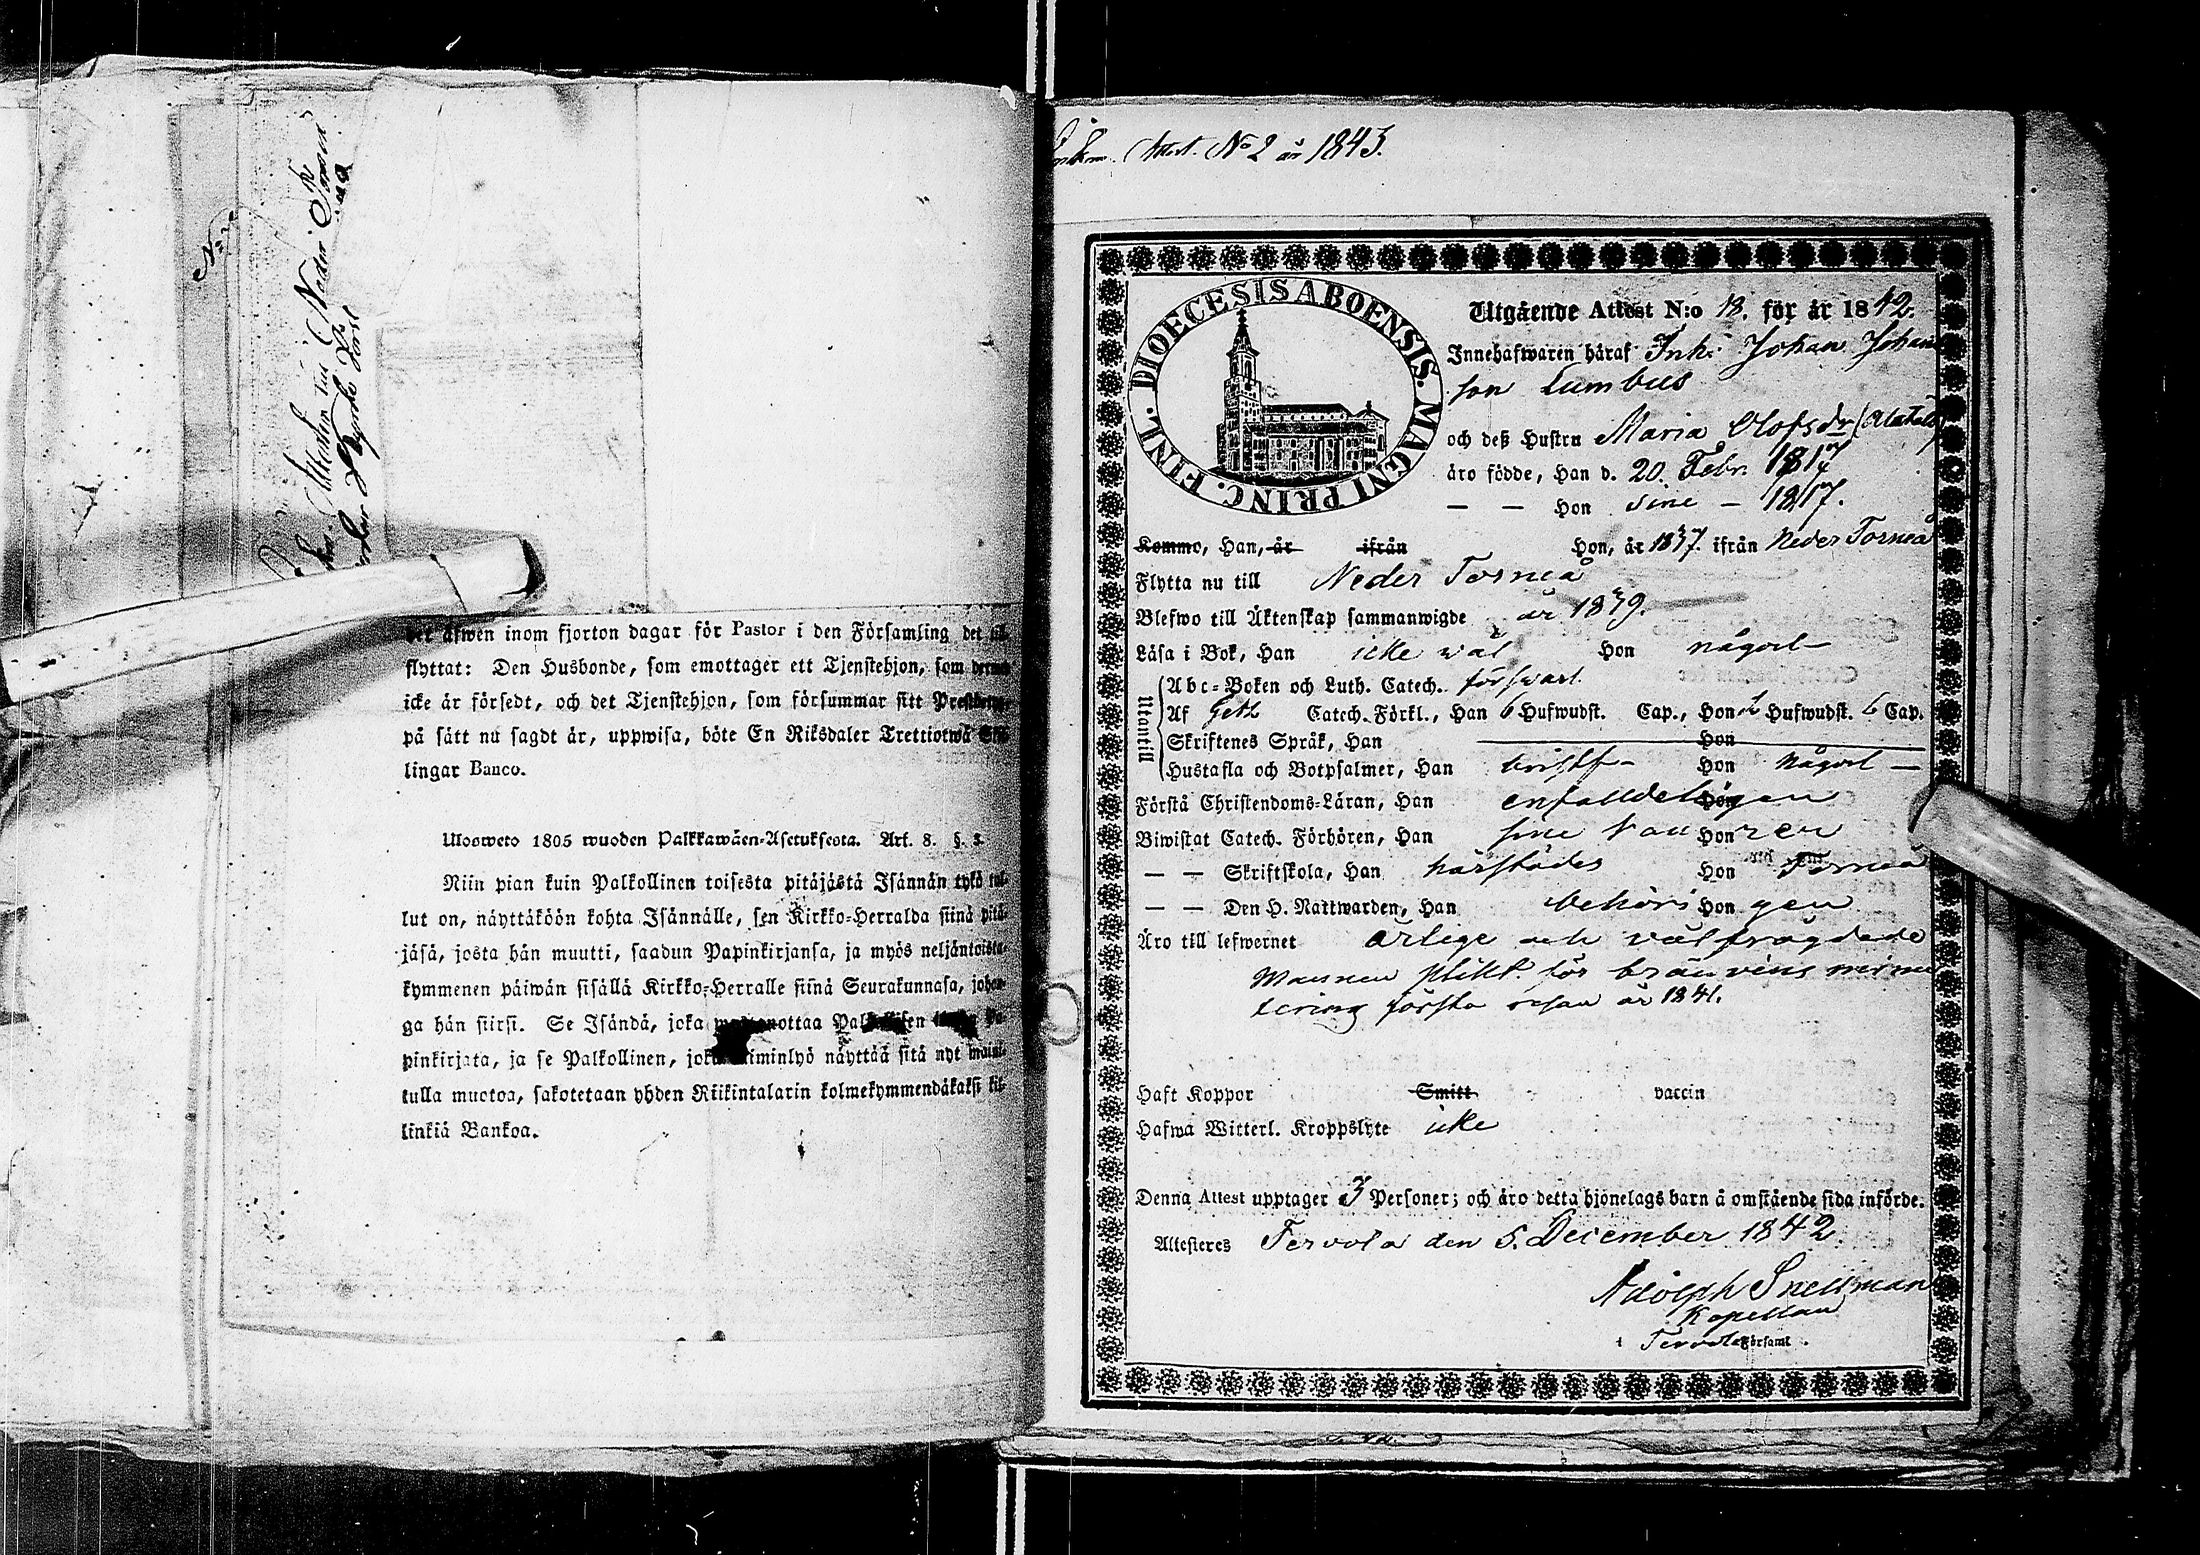 No
det äfwen inom fjorton dagar för Pastor i den Församling det
flyttat: Den Husbonde, som emottager ett Tjenstehjon, som
icke är försedt, och det Tjenstehjon, som försummar sitt
på sätt nu sagdt är, uppwisa, böte En Riksdaler Trettiotwå
lingar Banco.
Ulosweto 1805 wuoden Palkkawäen-Asetuksesta. Art. 8. §. 3.
Niin pian kuin Palkollinen toisesta pitäjästä Isännän tykö
lut on, näyttäköön kohta Isännälle, sen Kirkko-Herralda siinä pitä-
jäsä, josta hän muutti, saadun Papinkirjansa, ja myös neljäntoista-
kymmenen päiwän sisällä Kirkko-Herralle siinä Seurakunnasa, johon-
ga hän siirsi. Se Isändä, joka
pinkirjata, ja se Palkollinen, näyttää sitä nyt
tulla muotoa, sakotetaan yhden Riikintalarin kolmekymmendäkaksi kil-
linkiä Bankoa.
Attest. No 2 år 1843.
DIOECESIS ABOENSIS. MAGNI PRINC. FINL.
Utgående Attest N:o 18. för år 1842.
Innehafwaren häraf Inh. Johan Johans
son Lumbus
och deß Hustru Maria Olofsdr (Alatalo)
äro födde, Han d. 20. Febr. 1817
— — Hon sine — 1817.
Kommo, Han, år ifrån Hon, år 1837. ifrån Neder Torneå
Flytta nu till Neder Torneå
Blefwo till Äktenskap sammanwigde år 1839.
Läsa i Bok, Han icke wäl Hon någorl—
Mantill
Abc-Boken och Luth. Catech. förswarl.
Af Catech. Förkl., Han 6 Hufwudst. Cap., Hon 2 Hufwudst. 6 Cap.
Skriftenes Språk, Han Hon
Hustafla och Botpsalmer, Han bristf— Hon någorl —
Förstå Christendoms-Läran, Han enfalldeligen Hon
Biwistat Catech. Förhören, Han sine Hon
— — Skriftskola, Han härstädes Hon Torneå
— — Den H. Nattwarden, Han behöri Hon gen
Äro till lefwernet ärlige och välfrägdade
Mannen plikt. för bränvins minu
tering första resan år 1841.
Haft Koppor Smitt vaccin
Hafwa Witterl. Kroppslyte icke
Denna Attest upptager 3 Personer; och äro detta hjonelags barn å omstående sida införde.
Attesteres Tervola den 5. December 1842.
Adolph Snellman
Kapellan
i Tervola Församl.